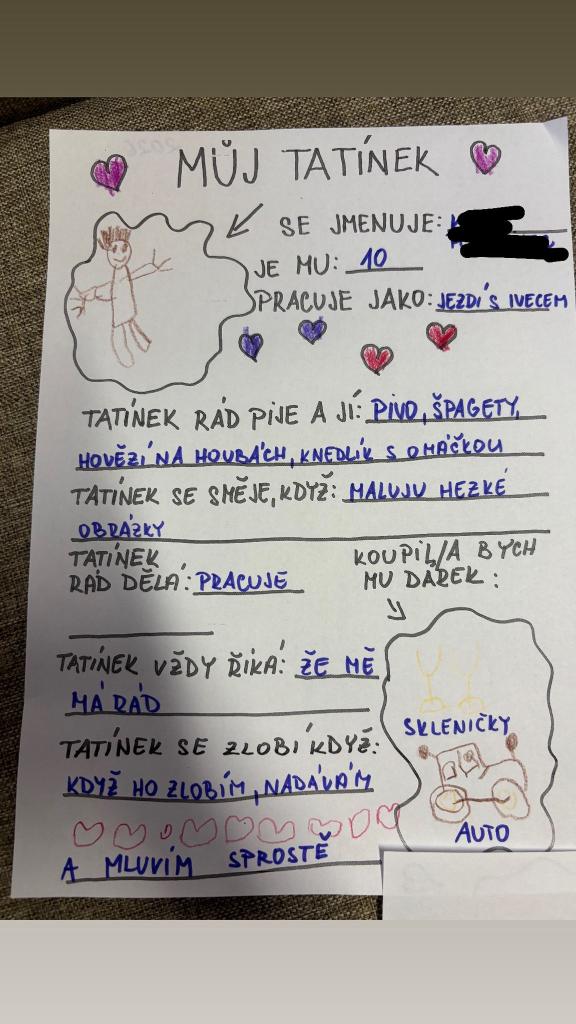 MŮJ TATÍNEK
SE JMENUJE:
JE MU: 10
PRACUJE JAKO: JEZDÍ S IVECEM
TATÍNEK RÁD PIJE A JÍ: PIVO, ŠPAGETY,
HOVĚZÍ NA HOUBÁCH, KNEDLÍK S OMÁČKOU
TATÍNEK SE SMĚJE, KDYŽ: MALUJU HEZKÉ
OBRÁZKY
TATÍNEK
RÁD DĚLÁ: PRACUJE
KOUPIL/A BYCH
MU DÁREK:
TATÍNEK VŽDY ŘÍKÁ: ŽE MĚ
MÁ RÁD
TATÍNEK SE ZLOBÍ KDYŽ:
KDYŽ HO ZLOBÍM, NADÁVÁM
A MLUVÍM SPROSTĚ
SKLENIČKY
AUTO